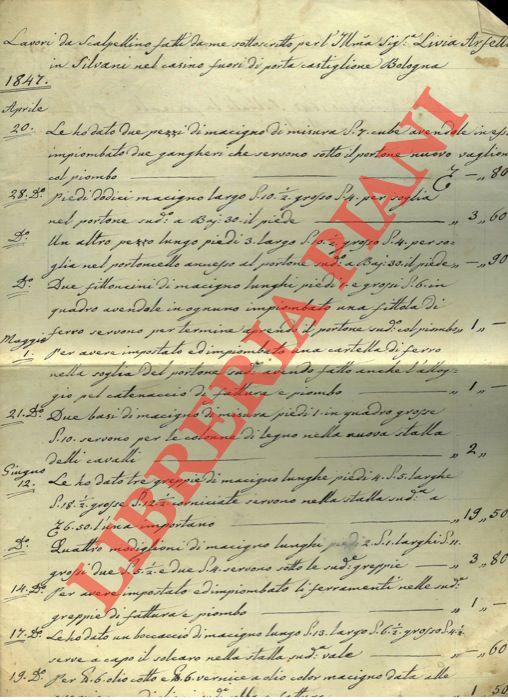 Lavori da Scalpellino fatti da me sottoscritto per l'Illma Sig.a Livia
in Silvani nel casino fuori di porta castiglione Bologna
1847.
Aprile
20. Le ho dato due pezzi di macigno di misura S. 7. cube avendole in essi
impiombato due gangheri che servono sotto il portone nuovo vaglion
col piombo — „ 80
28. Do. Piedi dodici macigno largo S. 10.½ grosso S. 4. per soglia
nel portone sud.o a Baj: 30: il piede „ 3 „ 60
Do. Un altro pezzo lungo piedi 3. largo S. 10.½ grosso S. 4. per so-
glia nel portoncello annesso al portone sud.o a Baj: 30: il piede „ — „ 90
Do. Due fittoncini di macigno lunghi piedi e grossi S. 6. in
quadro avendole in ognuno impiombato una fittola di
ferro servono per termine il portone sud.o col piombo „ 1 „ —
Maggio
1. Per avere impostato ed impiombato una cartella di ferro
nella soglia del portone sud.o avendo fatto anche l'allog-
gio pel catenaccio di fattura e piombo „ 1 „ —
21. Do. Due basi di macigno di misura piedi 1. in quadro grosse
S. 10. servono per le colonne di legno nella nuova stalla
delli cavalli „ 2 „
Giugno
12. Le ho dato tre greppie di macigno lunghe piedi 4. S. 5. larghe
S. 18.½ grosse S. 12.½ corniciate servono nella stalla sud.a a
6.50 l'una importano „ 19 „ 50
Do. Quattro modiglioni di macigno lunghi piedi 2. S. 1. larghi S. 11.
grossi due S. 5.½ e due S. 4. servono sotto le sud.e greppie — „ 3 „ 80
14. Do. Per avere impostato ed impiombato li ferramenti nelle sud.e
greppie di fattura e piombo „ 1 „ —
17. Do. Le ho dato un boccaccio di macigno lungo S. 13. largo S. 6.½ grosso S. 4.½
serve a capo il solcaro nella stalla sud.a vale „ — „ 60
19. Do. Per 6 olio cotto e vernice a olio color macigno data alle
1 50
LIBRERIA PIANI